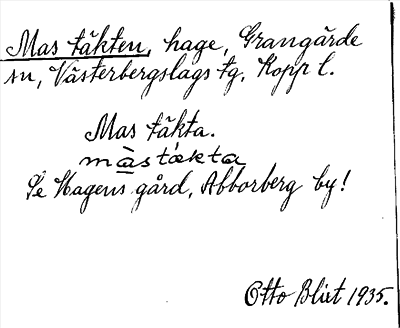 Mas täkten, hage, Grangärde
sn, Västerbergslags tg, Kopp l.
Mas täkta.
màstǽkta
Se Hagens gård, Abborberg by!
Otto Blixt 1935.